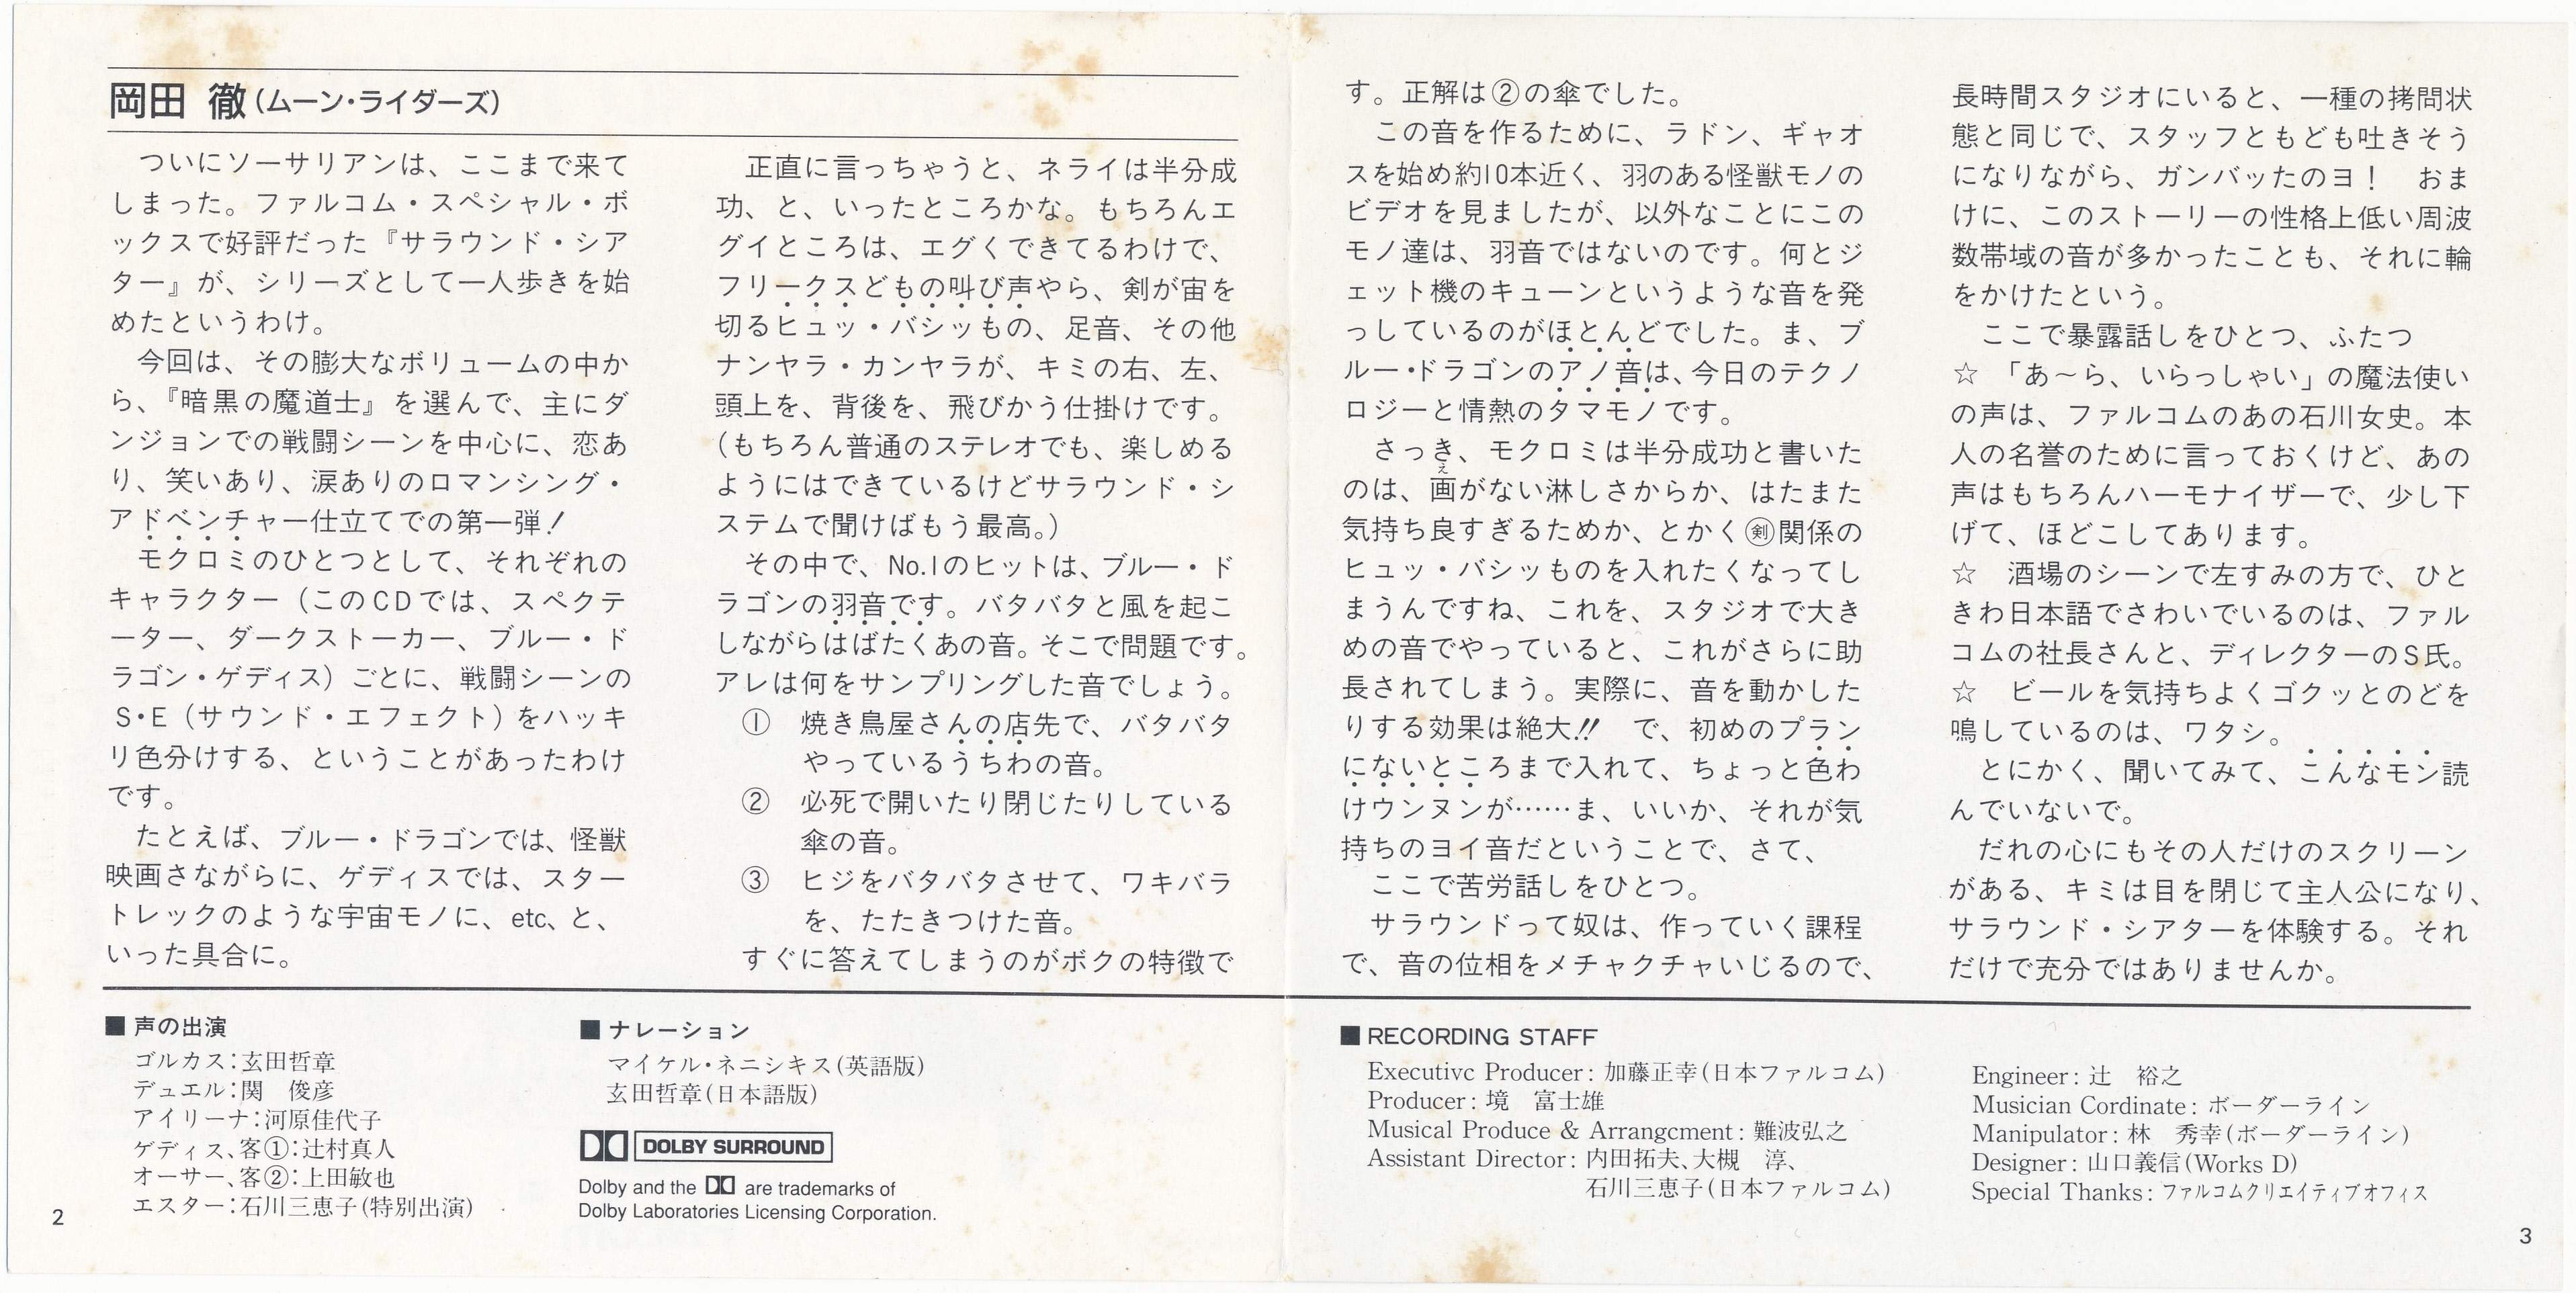 岡田 徹(ムーン・ライダーズ)
ついにソーサリアンは、ここまで来て
しまった。ファルコム・スペシャル・ボ
ックスで好評だった『サラウンド・シア
ター』が、シリーズとして一人歩きを始
めたというわけ。
今回は、その膨大なボリュームの中か
ら、『暗黒の魔道士』を選んで、主にダ
ンジョンでの戦闘シーンを中心に、恋あ
り、笑いあり、涙ありのロマンシング・
アドベンチャー仕立てでの第一弾!
モクロミのひとつとして、それぞれの
キャラクター(このCDでは、スペクテ
ーター、ダークストーカー、ブルー・ド
ラゴン・ゲディス)ごとに、戦闘シーンの
S・E(サウンド・エフェクト)をハッキ
リ色分けする、ということがあったわけ
です。
たとえば、ブルー・ドラゴンでは、怪獣
映画さながらに、ゲディスでは、スター
トレックのような宇宙モノに、etc、と、
いった具合に。
正直に言っちゃうと、ネライは半分成
功、と、いったところかな。もちろんエ
グイところは、エグくできてるわけで、
フリークスどもの叫び声やら、剣が宙を
切るヒュッ・バシッもの、足音、その他
ナンヤラ・カンヤラが、キミの右、左、
頭上を、背後を、飛びかう仕掛けです。
(もちろん普通のステレオでも、楽しめる
ようにはできているけどサラウンド・シ
ステムで聞けばもう最高。)
その中で、No.1のヒットは、ブルー・ド
ラゴンの羽音です。バタバタと風を起こ
しながらはばたくあの音。そこで問題です。
アレは何をサンプリングした音でしょう。
① 焼き鳥屋さんの店先で、バタバタ
やっているうちわの音。
② 必死で開いたり閉じたりしている
傘の音。
③ ヒジをバタバタさせて、ワキバラ
を、たたきつけた音。
すぐに答えてしまうのがボクの特徴で
す。正解は②の傘でした。
この音を作るために、ラドン、ギャオ
スを始め約10本近く、羽のある怪獣モノの
ビデオを見ましたが、以外なことにこの
モノ達は、羽音ではないのです。何とジ
ェット機のキューンというような音を発
っしているのがほとんどでした。ま、ブ
ルー・ドラゴンのアノ音は、今日のテクノ
ロジーと情熱のタマモノです。
さっき、モクロミは半分成功と書いた
のは、画がない淋しさからか、はたまた
気持ち良すぎるためか、とかく㊞関係の
ヒュッ・バシッものを入れたくなってし
まうんですね、これを、スタジオで大き
めの音でやっていると、これがさらに助
長されてしまう。実際に、音を動かした
りする効果は絶大!! で、初めのプラン
にないところまで入れて、ちょっと色わ
けウンヌンが……ま、いいか、それが気
持ちのヨイ音だということで、さて、
ここで苦労話しをひとつ。
サラウンドって奴は、作っていく課程
で、音の位相をメチャクチャいじるので、
長時間スタジオにいると、一種の拷問状
態と同じで、スタッフともども吐きそう
になりながら、ガンバッたのヨ! おま
けに、このストーリーの性格上低い周波
数帯域の音が多かったことも、それに輪
をかけたという。
ここで暴露話しをひとつ、ふたつ
☆ 「あ〜ら、いらっしゃい」の魔法使い
の声は、ファルコムのあの石川女史。本
人の名誉のために言っておくけど、あの
声はもちろんハーモナイザーで、少し下
げて、ほどこしてあります。
☆ 酒場のシーンで左すみの方で、ひと
きわ日本語でさわいでいるのは、ファル
コムの社長さんと、ディレクターのS氏。
☆ ビールを気持ちよくゴクッとのどを
鳴しているのは、ワタシ。
とにかく、聞いてみて、こんなモン読
んでいないで。
だれの心にもその人だけのスクリーン
がある、キミは目を閉じて主人公になり、
サラウンド・シアターを体験する。それ
だけで充分ではありませんか。
■声の出演
ゴルカス:玄田哲章
デュエル:関 俊彦
アイリーナ:河原佳代子
ゲディス、客①:辻村真人
オーサー、客②:上田敏也
エスター:石川三恵子(特別出演)
■ナレーション
マイケル・ネニシキス(英語版)
玄田哲章(日本語版)
DOLBY SURROUND
Dolby and the are trademarks of
Dolby Laboratories Licensing Corporation.
■RECORDING STAFF
Executive Producer: 加藤正幸(日本ファルコム)
Producer: 境 富士雄
Musical Produce & Arrangement: 難波弘之
Assistant Director: 内田拓夫、大槻 淳、
石川三恵子(日本ファルコム)
Engineer: 辻 裕之
Musician Cordinate: ボーダーライン
Manipulator: 林 秀幸(ボーダーライン)
Designer: 山口義信(Works D)
Special Thanks: ファルコムクリエイティブオフィス
2
3